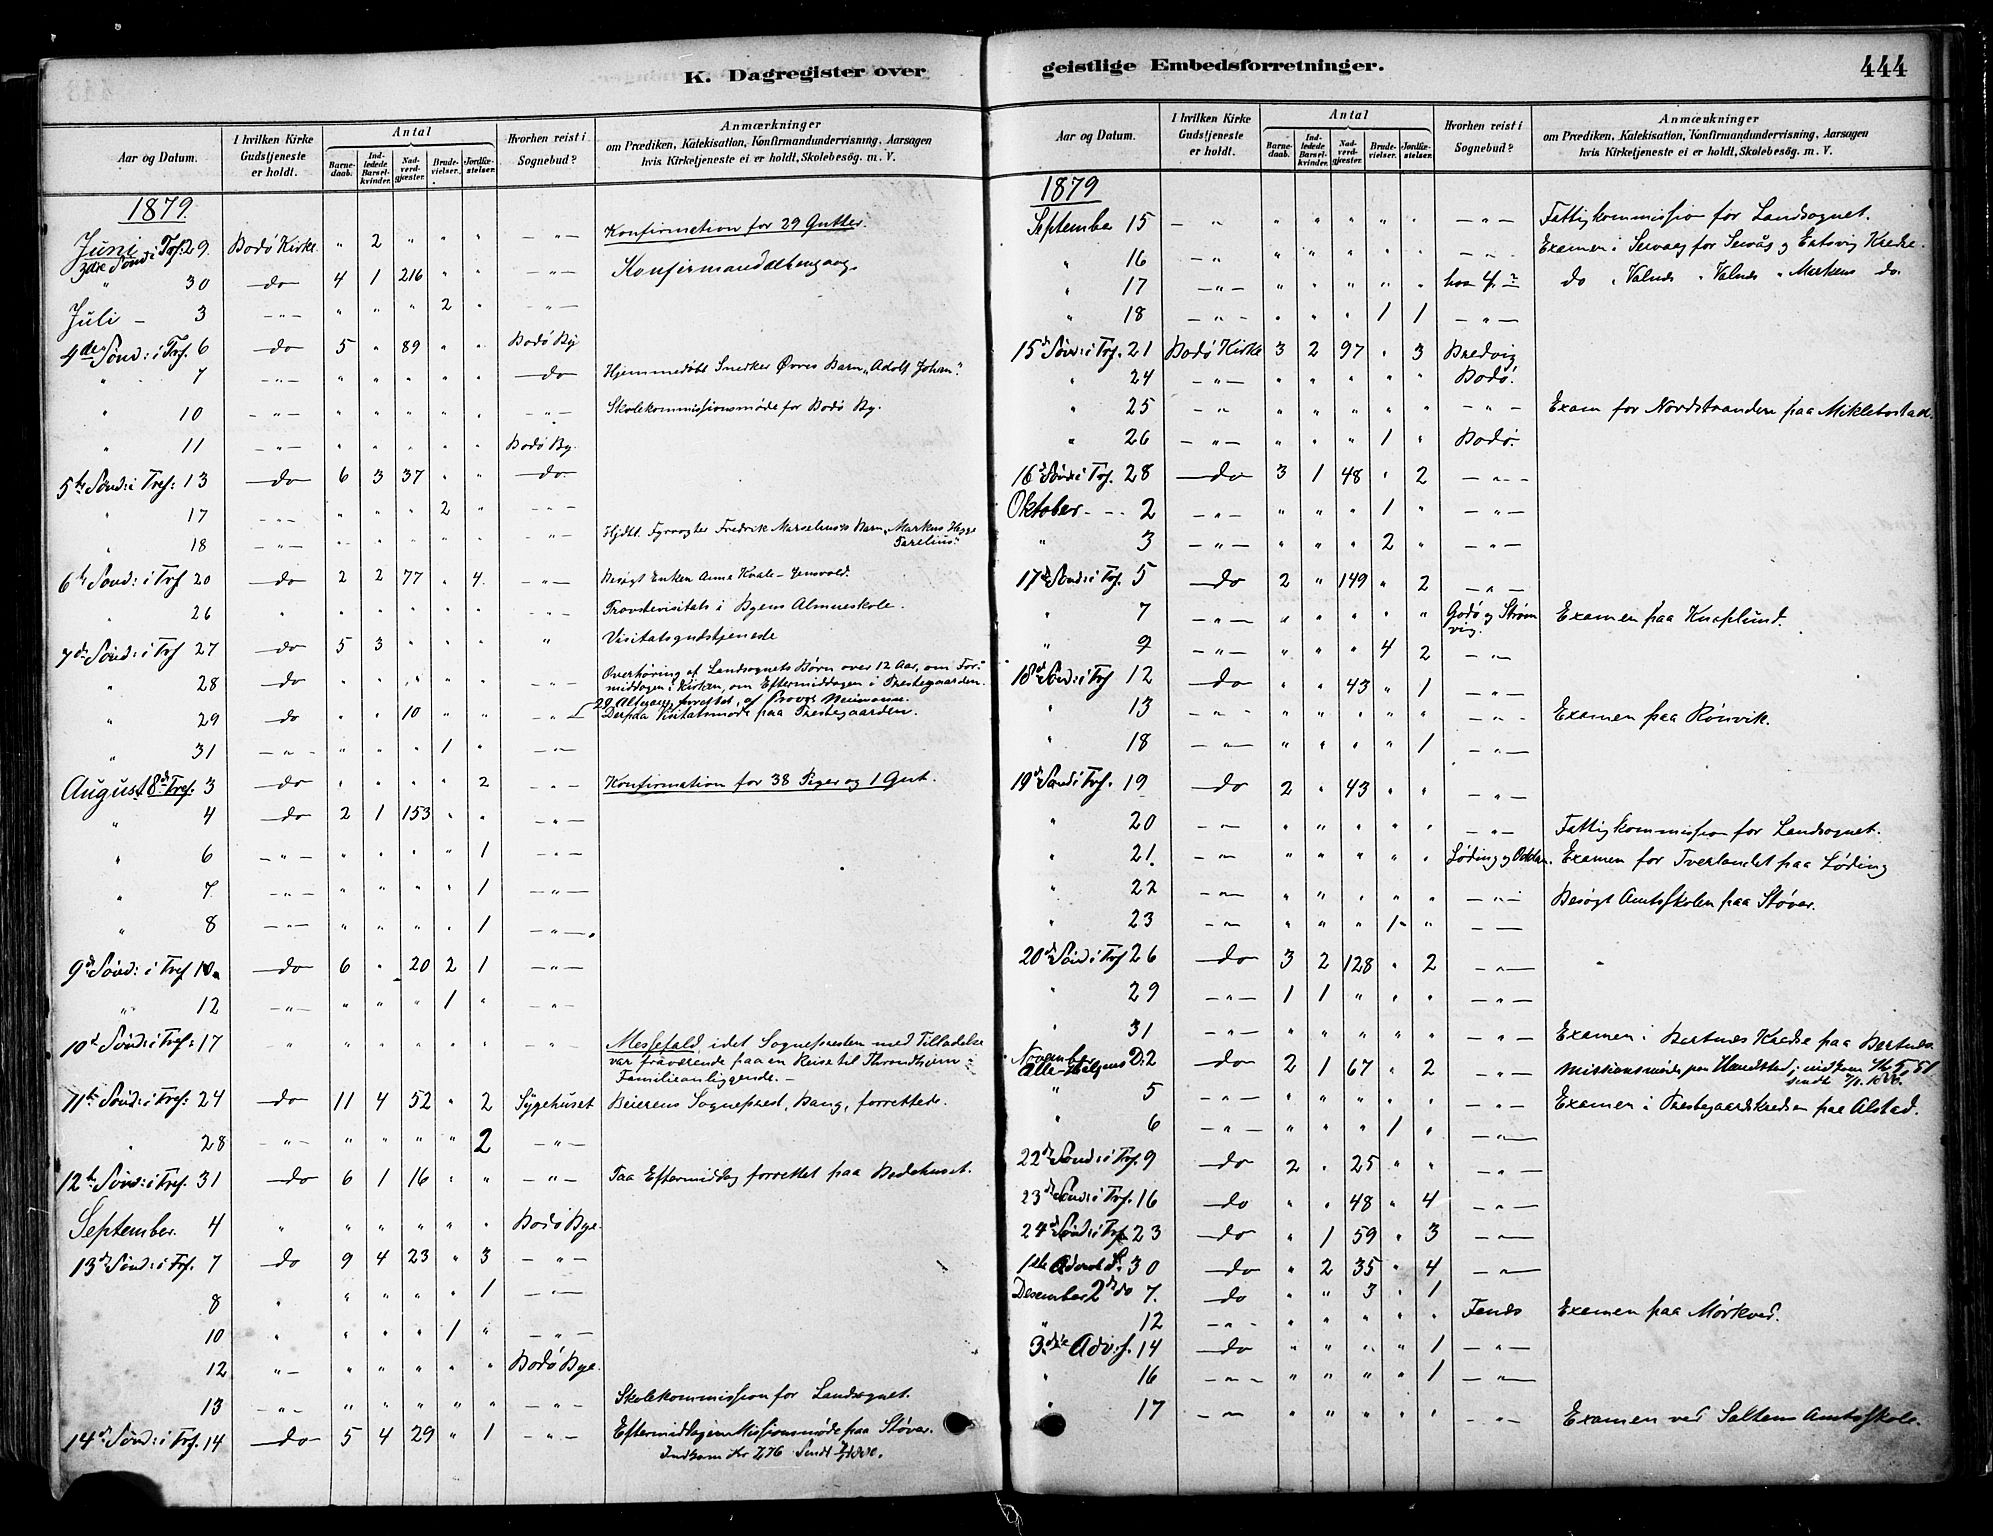 K. Dagregister over
Aar og Datum. I hvilken Kirke Gudstjeneste er holdt. Antal Barnedaab. Indledede Barselkvinder. Nadverdgjæster. Brudevielser. Jordfæstelser. Hvorhen reist i Sognebud? Anmærkninger om Prædiken, Katekisation, Konfirmandundervisning, Aarsagen hvis Kirketjeneste ei er holdt, Skolebesøg. m. V.
1879.
Juni 3die Sønd: i Tref: 29. Bodö Kirke. " 2 " " " — " — Konfirmation for 29 Gutter.
" 30 — do 4 1 216 " " — " — Konfirmandaltergang.
Juli — 3 — " — " " " 2 " — " —
4de Sønd: i Tref. 6 — do 5 " 89 " " Bodö By
" 7 — " — " " " " " — do Hjemmedöbt Snedker Övres Barn, "Adolf Johan".
" 10 — " — " " " " " — " — Skolekommissionsmöde for Bodö By.
" 11 — " — " " " " " Bodö By.
5te Sønd: i Tref: 13 — do 6 3 37 " " — do.
" 17 — " — " " " 2 " — " —
" 18 — " — " " " " " — " — Hjdbt. Fyrvogter Fredrik Marselius's Barn, "Markus Hegge
6te Sønd: i Tref 20 — do 2 2 77 " 4. — " — Besögt Enken Anna Kvale - Jensvold.
" 26 " " " " " " — " — Provstevisitats i Byens Almueskole.
7de Sønd: i Tref 27 do 5 3 " " " " Visitatsgudstjeneste
" 28 — do " " " " " — " — Overhöring af Landsognets Börn over 12 Aar, om Formiddagen i Kirken, om Eftermiddagen i Prestegaarden.
" 29 do " " 10 " " — " — 29 Altergang forrettet, af Provst Neumann. Derpaa Visitatsmöde paa Prestegaarden.
" 31 — " — " " " 1 " — " —
August 8de Tref: 3 — do " " " " 2 — " — Konfirmation for 38 Piger og 1 Gut.
" 4 — do 2 1 153 " " — " —
" 6 — " — " " " " 1 — " —
" 7. — " — " " " " 1 — " —
" 8 — " — " " " " 1 — " —
9de Sønd: i Tref 10 — do 6 " 20 2 1 — " —
" 12 — " — " " " 1 " — " —
10de Sønd: i Tref: 17 — " — " " " " " — " — Messefald idet Sognepresten med Tilladelse
var fraværende paa en Reise til Throndhjem i
Familieanliggende. —
11te Sønd: i Tref: 24 — do 11 4 52 " 2 Sygehuset Beierens Sogneprest, Bang, forrettede.
" 28 — " — " " " " 2 — " —
12te Sønd: i Tref. 31 — do 6 1 16 " " — " — Paa Eftermiddag forrettet paa Bedehuset.
September. 4 " " " " " " Bodö Bye.
13de Sønd: i Tref. 7 do 9 4 23 " 3 — " —
8 " " " " " 1 — " —
10 " " " " 1 " — " —
12 — " — " " " " " Bodö Bye.
13 — " — " " " " " — " — Skolekommission for Landsognet.
14de Sønd: i Tref. 14 — do 5 4 29 " 1 — " — Eftermiddagen Missionsmöde paa Stöver.
Indkom Kr 7,76 Sendt
geistlige Embedsforretninger.
444
Aar og Datum. I hvilken Kirke Gudstjeneste er holdt. Antal Barnedaab. Indledede Barselkvinder. Nadverdgjæster. Brudevielser. Jordfæstelser. Hvorhen reist i Sognebud? Anmærkninger om Prædiken, Katekisation, Konfirmandundervisning, Aarsagen hvis Kirketjeneste ei er holdt, Skolebesøg. m. V.
1879
September 15 — " " " " " " — " — Fattigkommission for Landsognet.
" 16 — " " " " " " — " — Examen i Seivaag for Seivåg og Entsvig Kreds.
" 17 — " — " " " " " hos 4. do " Valnes " Valnes " Mørkens do.
" 18 — " — " " " 1 1 — " —
15de Sønd: i Tref. 21 Bodö Kirke 3 2 97 " 3 Bredvig
" 24 — " — " " " " " Bodö.
" 25 — " " " " " " — " — Exam for Nordstranden paa Miklebostad.
" 26 — " — " " " 1 " Bodö.
16de Sønd: i Tref. 28 — do 3 1 48 " 2 — " —
Oktober — 2 — " — " " " 1 " — " —
" 3 — " — " " " 2 " — " —
17de Sønd: i Tref. 5 — do 2 " 149 " 2 — " —
" 7 — " — " " " " " Godö og Strömvig. Examen paa Knaplund.
" 9 — " — " " " 4 2 — " —
18de Sønd: i Tref 12 — do " " 43 " 1 — " —
" 13 — " — " " " " " — " — Examen paa Rönvik.
" 18 — " — " " " " 1 — " —
19de Sønd i Tref. 19 — do 2 " 43 " " — " —
" 20 — " — " " " " " — " — Fattigkommission for Landsognet.
" 21. — " — " " " " " Löding og Examen for Tverlandet paa Löding
" 22 — " — " " " " " — " — Besögt Amtsskolen paa Stöver.
" 23 — " — " " " 1 " — " —
20de Sønd i Tref 26 — do 3 2 128 " 2 — " —
" 29 — " — 1 1 " " " — " —
" 31 — " — " " " " " — " — Examen i Bertnes Kreds paa Bertnes
November Alle-Helgens D. 2 — do 2 1 67 " 2 — " — Missionsmöde paa Hundstad; indkom Kr 5,51
" 5 — " — " " " " " — " — Examen i Prestegaardskredsen paa Alstad.
" 6 — " — " " " 1 " — " —
22de Sønd: i Tref. 9 — do 2 " 25 " " — " —
23de Sønd: i Tref. 16 do " " 48 " 4 — " —
24de Sønd: i Tref 23 — do " 1 59 " 3 — " —
1ste Advent S. 30 — do " 2 35 " 4 — " —
Desember 2den do 7. — do " " 3 " 1
" 12 — " — " " " " " Fenes Examen paa Mörkved.
3die Adv. f. 14 — do " " " " 1 — " —
" 16 — " — " " " " 1 — " —
" 17 — " — " " " " " — " — Examen ved Saltens Amtsskole.